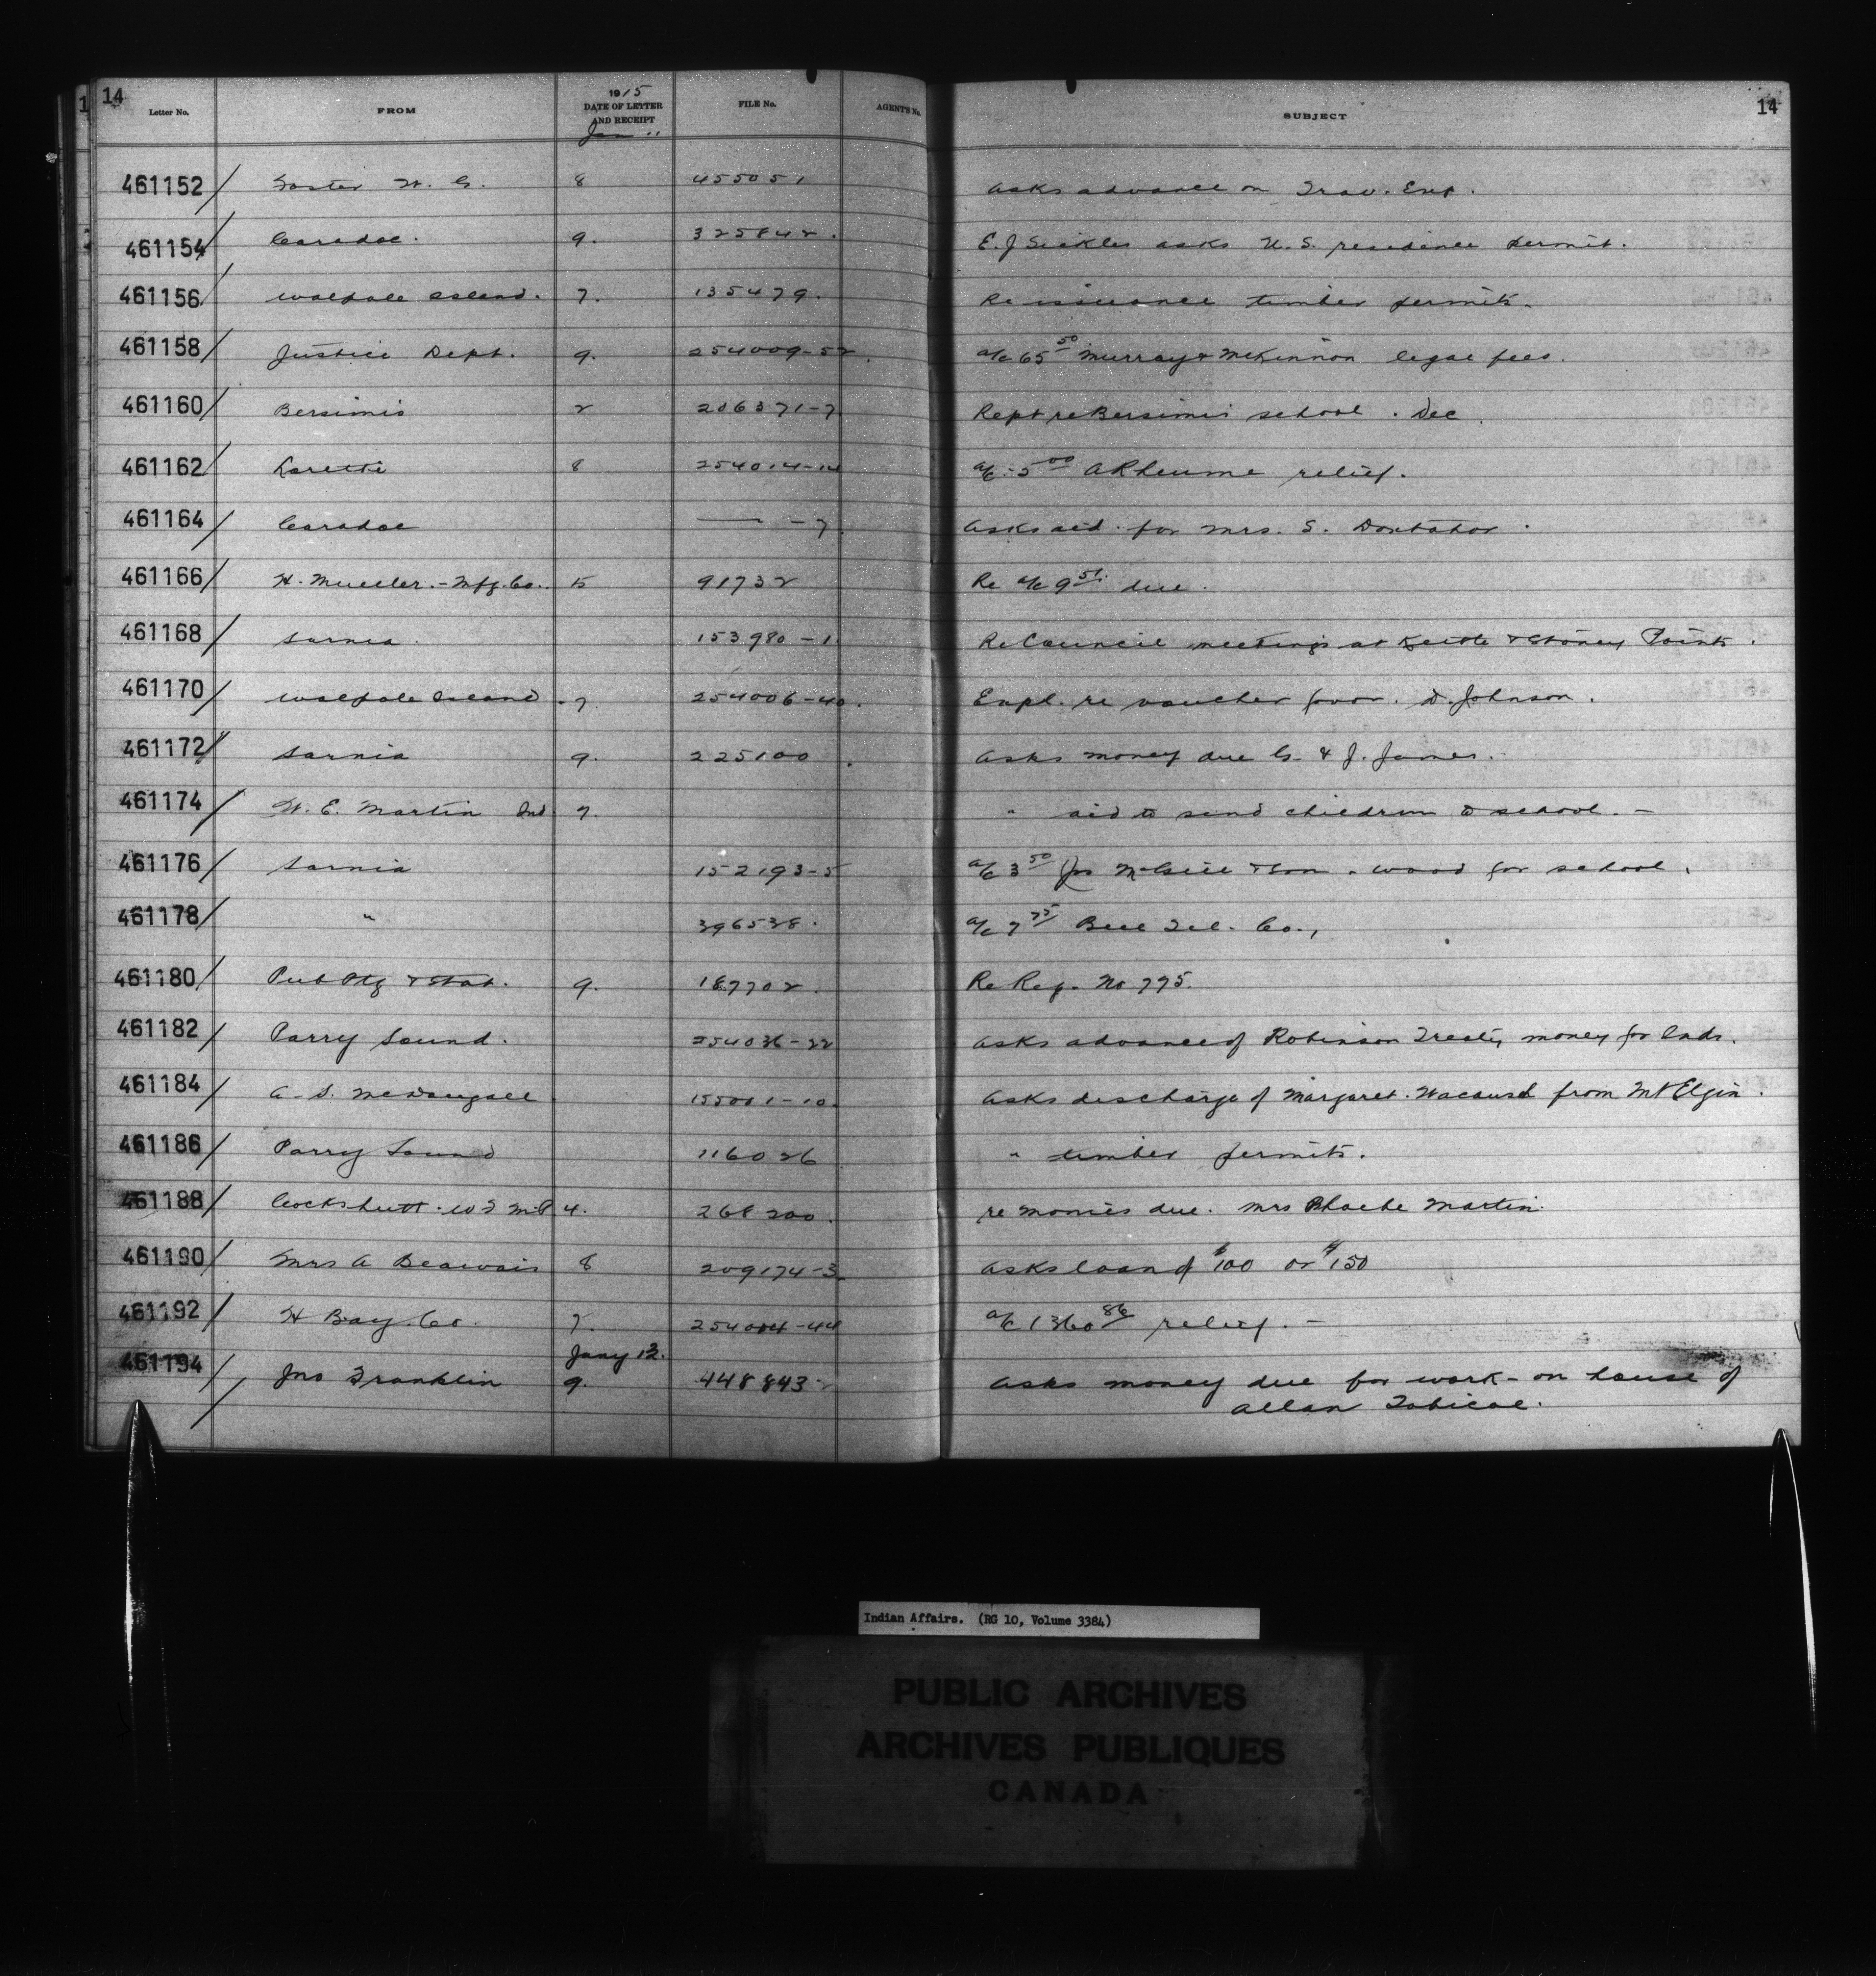 14
Letter No. FROM 1915 DATE OF LETTER AND RECEIPT FILE No. AGENT'S No. SUBJECT 14
Jan 11
461152 Foster W. G. 8 455051 Asks advance on Trav. Exp.
461154 Caradoc. 9. 325842. E. J Sickles asks U. S. residence permit.
461156 Walpole Island. 7. 135479. Re issuance timber permits.
461158 Justice Dept. 9. 254009-52. a/c 65 50 Murray & McKinnon legal fees.
461160 Bersimis 2 206371-7 Rept re Bersimis school. Dec
461162 Lorette 8 254014-14 a/c 5 00 A Rheume relief.
461164 Caradoc — -7. Asks aid for Mrs. S. Doxtator.
461166 H. Mueller. - Mfg. Co. 15 91732 Re a/c 9 51 due.
461168 Sarnia. 153980-1 Re Council meetings at Kettle & Stoney Points.
461170 Walpole Island 7 254006-40. Expl. re voucher favor. D. Johnson.
461172 Sarnia 9. 225100. Asks money due G. & J. James.
461174 W. E. Martin Ind. 7. " aid to send children to school. -
461176 Sarnia 152193-5 a/c 3 50 Jas McGill & Son. wood for school.
461178 " 396538. a/c 7 75 Bell Tel. Co.,
461180 Pub Ptg & Stat. 9. 187702. Re Req. No 775.
461182 Parry Sound. 254036-22 Asks advance of Robinson Treaty money for Inds.
461184 A. S. McDougall 155001-10. Asks discharge of Margaret from Mt Elgin.
461186 Parry Sound 116026 " timber permits.
461188 Cockshutt. W F M.P 4. 268200. re monies due. Mrs Phoebe Martin.
461190 Mrs A Beauvais 8 209174-3 Asks loan of $100 or $150
461192 H Bay. Co. 7. 254004-44 a/c 1360 86 relief. -
Jany 12.
461194 Jno Franklin 9. 448843 Asks money due for work - on house of
Allan Tobicoe.
Indian Affairs. (RG 10, Volume 3384)
PUBLIC ARCHIVES
ARCHIVES PUBLIQUES
CANADA